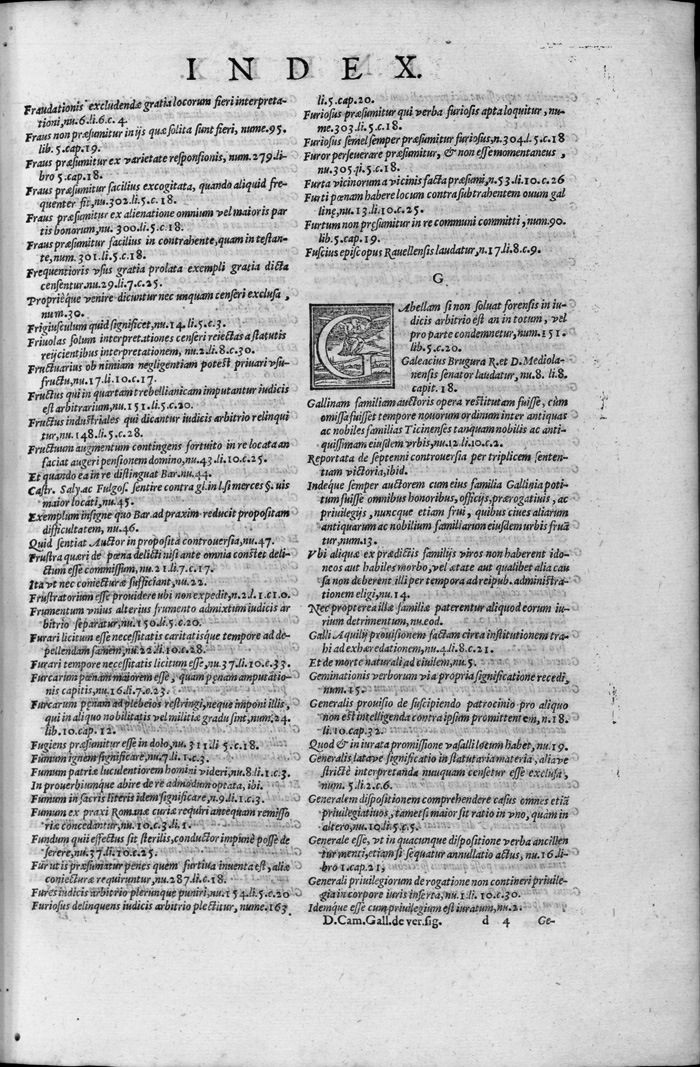 INDEX.
Fraudationis excludendæ gratia locorum fieri interpreta-
tioni, nu.6.li.6.c.4.
Fraus non præsumitur in ijs quæ solita sunt fieri, nume.95.
lib.5.cap.19.
Fraus præsumitur ex varietate responsionis, num.279.li-
bro 5.cap.18.
Fraus præsumitur facilius excogitata, quando aliquid fre-
quenter fit, nu.302.li.5.c.18.
Fraus præsumitur ex alienatione omnium vel maioris par
tis bonorum, nu.300.li.5.c.18.
Fraus præsumitur facilius in contrahente, quam in testan-
te, num.301.li.5.c.18.
Frequentioris vsus gratia prolata exempli gratia dicta
censentur, nu.29.li.7.c.25.
Proprièque venire dicuntur nec unquam censeri exclusa,
num.30.
Frigiusculum quid significet, nu.14.li.5.c.3.
Friuolas solum interpretationes censeri reiectas a statutis
reijcientibus interpretationem, nu.2.li.8.c.30.
Fructuarius ob nimiam negligentiam potest priuari vsu-
fructu, nu.17.li.10.c.17.
Fructus qui in quartam trebellianicam imputantur iudicis
est arbitrarium, nu.151.li.5.c.20.
Fructus industriales qui dicantur iudicis arbitrio relinqui
tur, nu.148.li.5.c.28.
Fructuum augmentum contingens fortuito in re locata an
faciat augeri pensionem domino, nu.43.li.10.c.25.
Et quando ea in re distinguat Bar. nu.44.
Castr. Saly. ac Fulgos. sentire contra gl. in l. si merces §. uis
maior locati, nu.45.
Exemplum insigne quo Bar. ad praxim reducit propositam
difficultatem, nu.46.
Quid sentiat Auctor in proposita controuersia, nu.47.
Frustra quæri de pœna delicti nisi ante omnia constet deli-
ctum esse commissum, nu.21.li.7.c.17.
Ita vt nec coniecturæ sufficiant, nu.22.
Frustratorium esse prouidere ubi non expedit, n.2.l.1.c.10.
Frumentum vnius alterius frumento admixtum iudicis ar
bitrio separatur, nu.150.li.5.c.20.
Furari licitum esse necessitatis caritatisque tempore ad de-
pellendam famem, nu.22.li.10.c.28.
Furari tempore necessitatis licitum esse, nu.37.li.10.c.33.
Furcarum pœnam maiorem esse, quam pœnam amputatio-
nis capitis, nu.16.li.7.c.23.
Furcarum pœnam ad plebeios restringi, neque imponi illis,
qui in aliquo nobilitatis vel militiæ gradu sint, num.24.
lib.10.cap.12.
Fugiens præsumitur esse in dolo, nu.311.li.5.c.18.
Fumum ignem significare, nu.7.li.1.c.3.
Fumum patriæ luculentiorem homini videri, nu.8.li.1.c.3.
In prouerbiumque abire de re admodum optata, ibi.
Fumum in sacris literis idem significare, n.9.li.1.c.3.
Fumum ex praxi Romanæ curiæ requiri antequam remisso
riæ concedantur, nu.10.c.3.li.1.
Fundum qui effectus sit sterilis, conductor impunè posse de
serere, nu.37.li.10.c.25.
Fur ut is præsumatur penes quem furtiua inuenta est, aliæ
coniecturæ requiruntur, nu.287.li.c.18.
Fures iudicis arbitrio plerunque puniri, nu.154.li.5.c.20
Furiosus delinquens iudicis arbitrio plectitur, nume.163.
li.5.cap.20.
Furiosus præsumitur qui verba furiosis apta loquitur, nu-
me.303.li.5.c.18.
Furiosus semel semper præsumitur furiosus, n.304.l.5.c.18
Furor perseuerare præsumitur, & non esse momentaneus,
nu.305.li.5.c.18.
Furta vicinorum a vicinis facta præsumi, n.53.li.10.c.26
Furti pœnam habere locum contra subtrahentem ouum gal
linę, nu.13.li.10.c.25.
Furtum non pręsumitur in re communi committi, num.90.
lib.5.cap.19.
Fuscius episcopus Rauellensis laudatur, n.17.li.8.c.9.
G
GAbellam si non soluat forensis in iu-
dicis arbitrio est an in totum, vel
pro parte condemnetur, num.151.
lib.5.c.20.
Galeacius Brugura R. et D. Mediola-
nensis senator laudatur, nu.8. li.8.
capit.18.
Gallinam familiam auctoris opera restitutam fuisse, cùm
omissa fuisset tempore nouorum ordinum inter antiquas
ac nobiles familias Ticinenses tanquam nobilis ac anti-
quissimam eiusdem vrbis, nu.12.li.10.c.2.
Reportata de septenni controuersia per triplicem senten-
tiam victoria, ibid.
Indeque semper auctorem cum eius familia Gallinia poti-
tum fuisse omnibus honoribus, officijs, prærogatiuis, ac
priuilegijs, nuncque etiam frui, quibus ciues aliarum
antiquarum ac nobilium familiarum eiusdem urbis fruũ
tur, num.13.
Vbi aliquæ ex prædictis familijs viros non haberent ido-
neos aut habiles morbo, vel ætate aut qualibet alia cau
sa non deberent illi per tempora ad reipub. administra-
tionem eligi, nu.14.
Nec propterea illæ familiæ paterentur aliquod eorum iu-
rium detrimentum, nu. eod.
Galli Aquilij prouisionem factam circa institutionem tra-
hi ad exhæredationem, nu.4.li.8.c.21.
Et de morte naturali ad ciuilem, nu.5.
Geminationis verborum via propria significatione recedi,
num.15.
Generalis prouisio de suscipiendo patrocinio pro aliquo
non est intelligenda contra ipsum promittentem, n.18.
li.10.cap.32.
Quod & in iurata promissione vasalli locum habet, nu.19.
Generalis lataue significatio in statutaria materia, aliave
strictè interpretanda nunquam censetur esse exclusa,
num.5.li.2.c.6.
Generalem dispositionem comprehendere casus omnes etiã
priuilegiatiuos, tametsi maior sit ratio in vno, quam in
altero, nu.10.li.5.c.5.
Generale esse, vt in quacunque dispositione verba ancillen
tur menti, etiam si sequatur annullatio actus, nu.16.li-
bro 1.cap.21,
Generali priuilegiorum derogatione non contineri priuile-
gia in corpore iuris inserta, nu.1.li.10.c.30.
Idemque esse cum priuilegium est iuratum, nu.2.
D.Cam.Gall.de ver.sig. d 4 Ge-